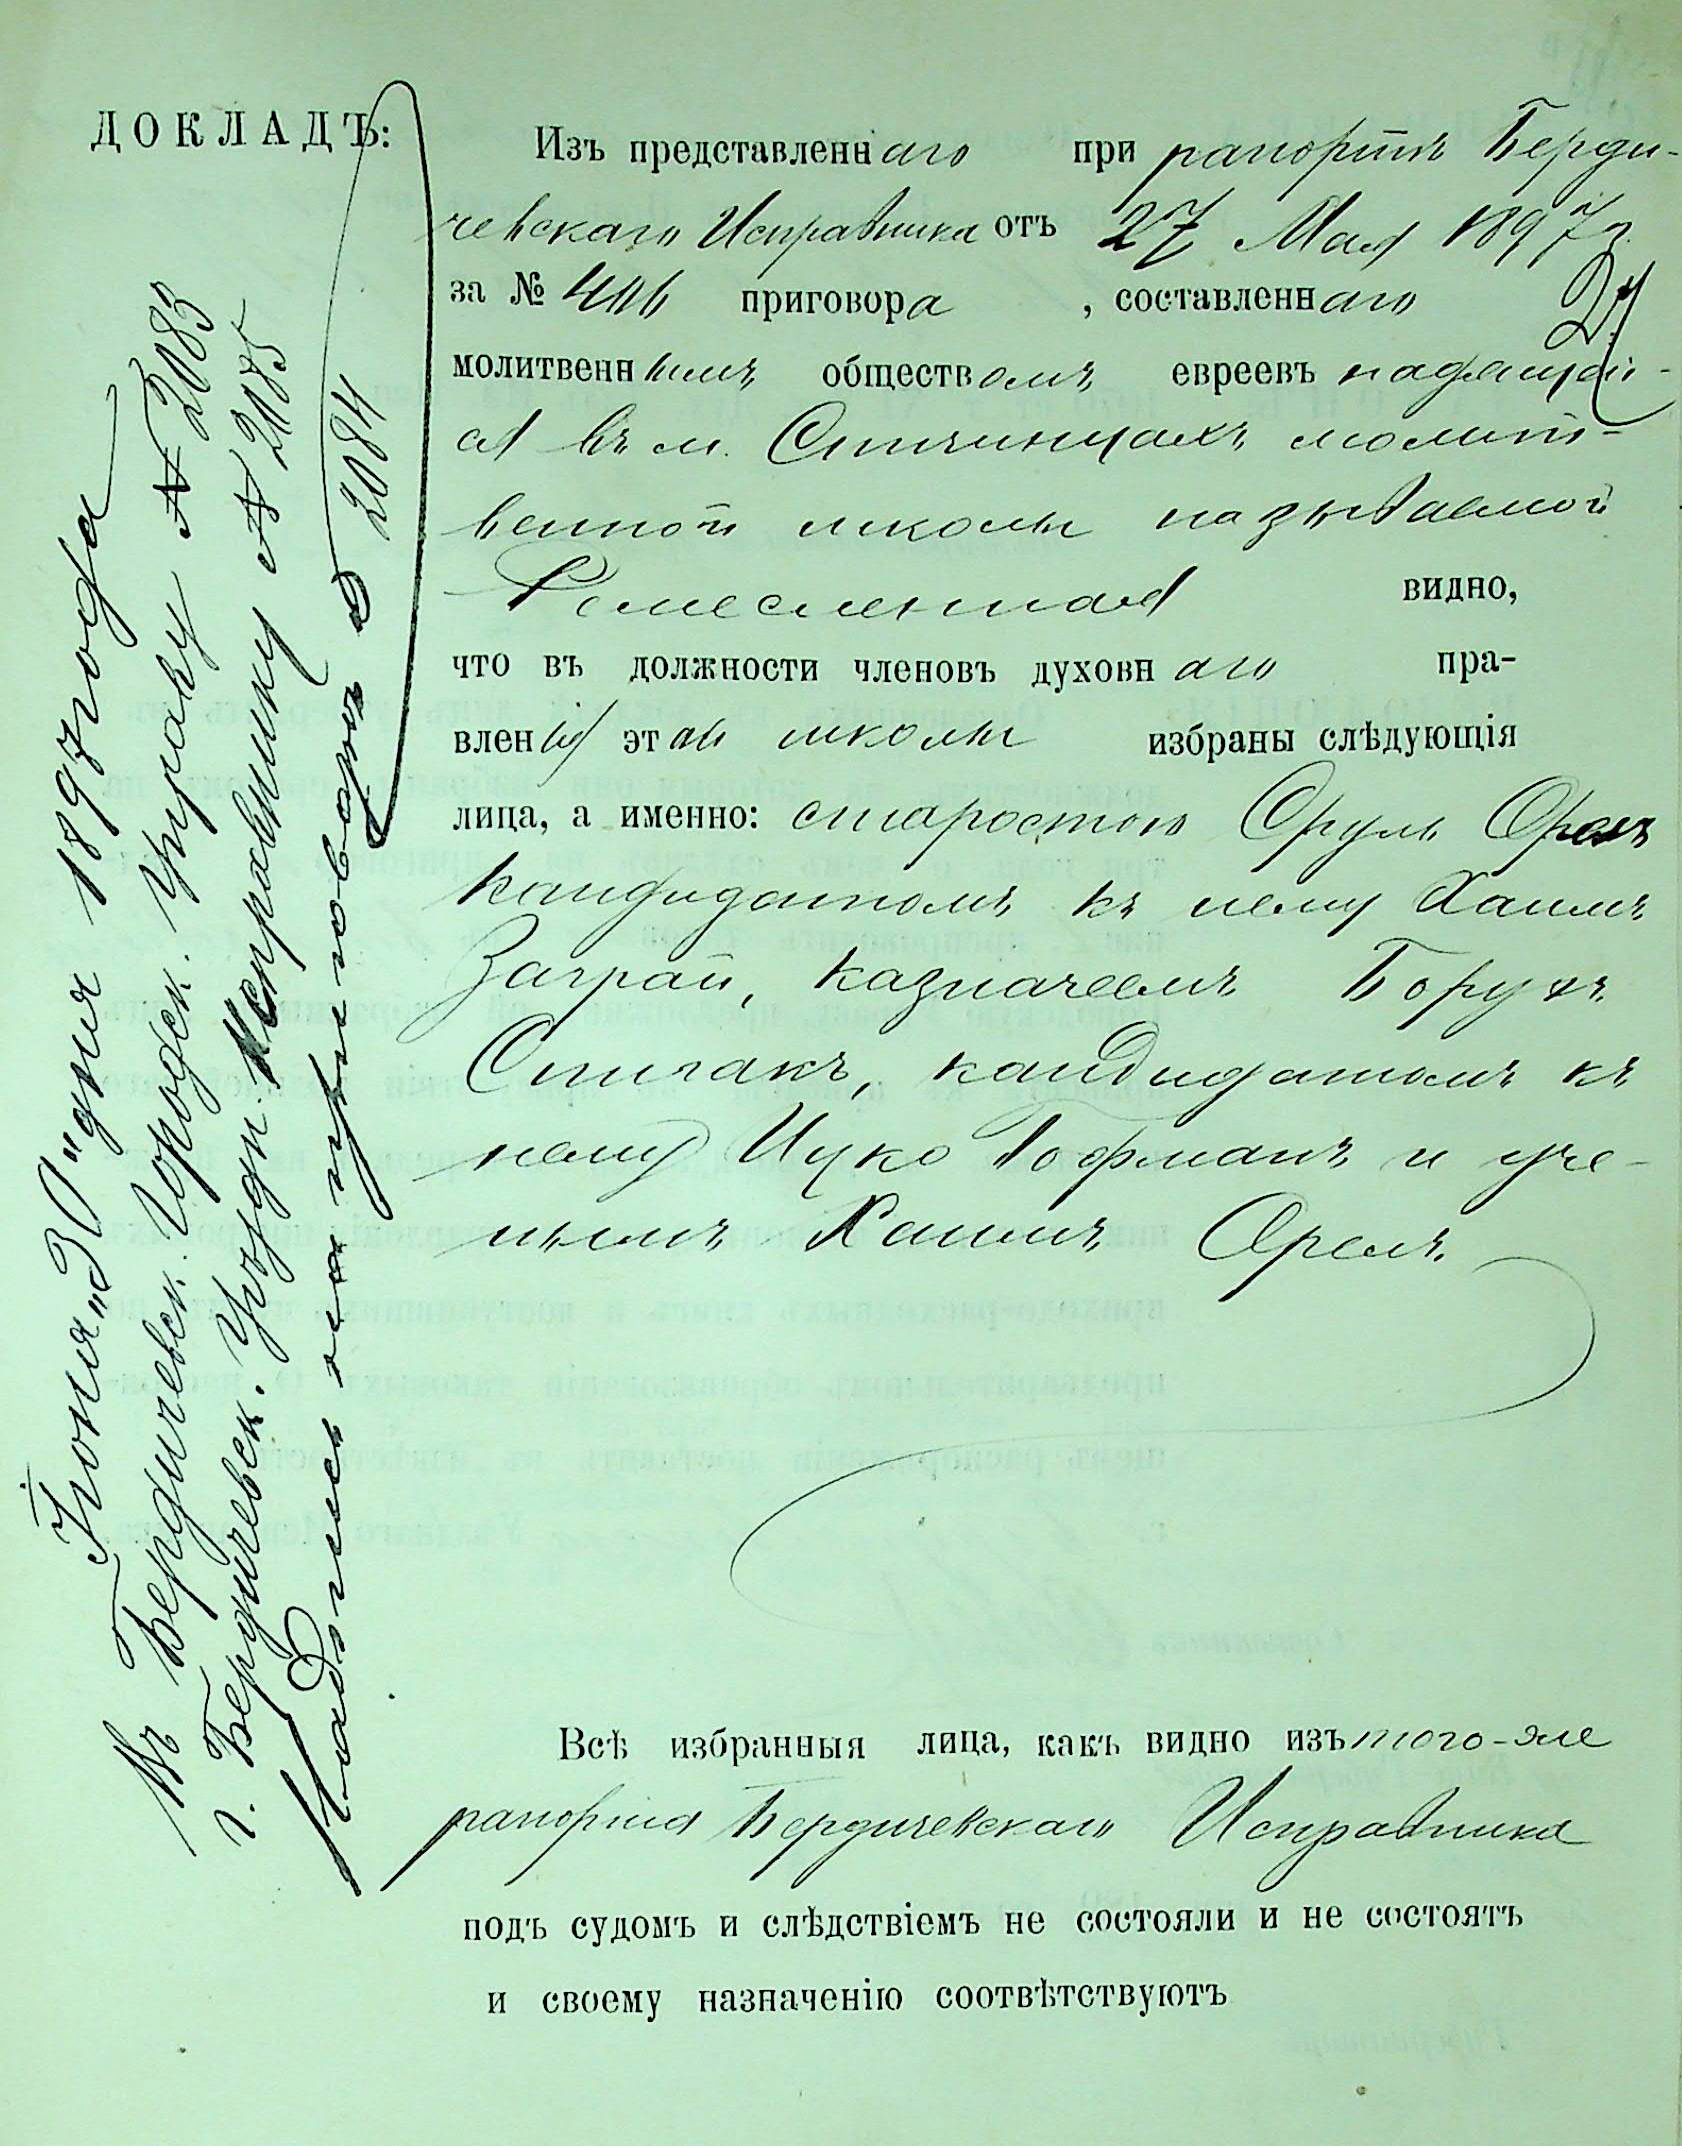 ДОКЛАДЪ:
Изъ представленнаго при рапортѣ Берди-
чевскаго Исправника отъ 27 Мая 1897 г.
за № 406 приговора , составленнаго
молитвеннымъ обществомъ евреевъ находящей-
ся въ м. Спичинцахъ молит-
венной школы называемой
Ремесленная видно,
что въ должности членовъ духовнаго пра-
вленія этой школы избраны слѣдующія
лица, а именно: старостою Сруль Орелъ
кандидатомъ къ нему Хаимъ
Заграй, казначеемъ Борухъ
Спигакъ, кандидатомъ къ
нему Ицко Гофманъ и уче-
нымъ Хаимъ Орелъ.
Всѣ избранныя лица, какъ видно изъ того-же
рапорта Бердичевскаго Исправника
подъ судомъ и слѣдствіемъ не состояли и не состоятъ
и своему назначенію соотвѣтствуютъ
Іюня „30" дня 1897 года
Въ Бердичевск. Городск. Управу № 2083
г. Бердичевск. Уѣздн. Исправнику № 2085
Надпись на приговорѣ № 2084